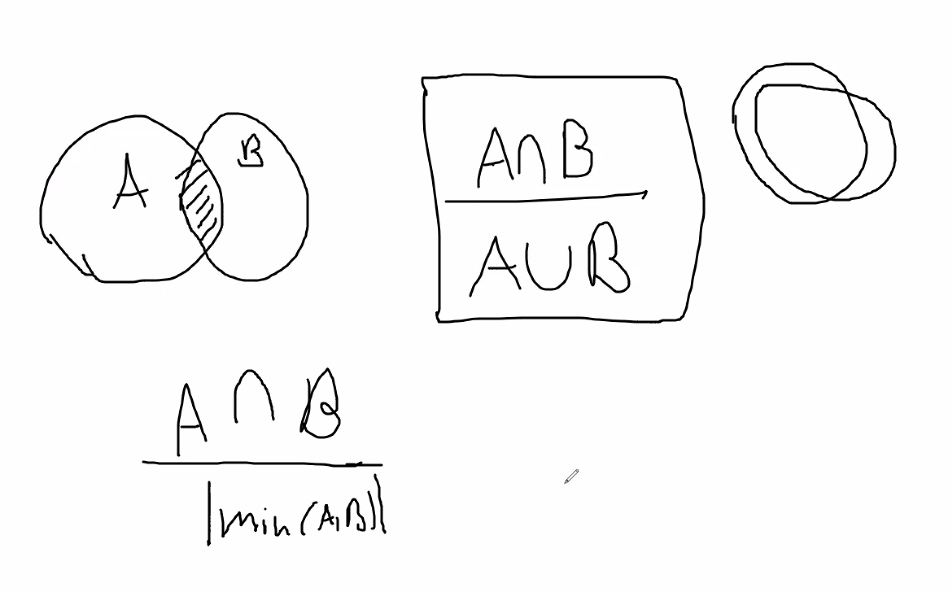 A
B
A∩B
A∪B
A ∩ B
|min(A,B)|